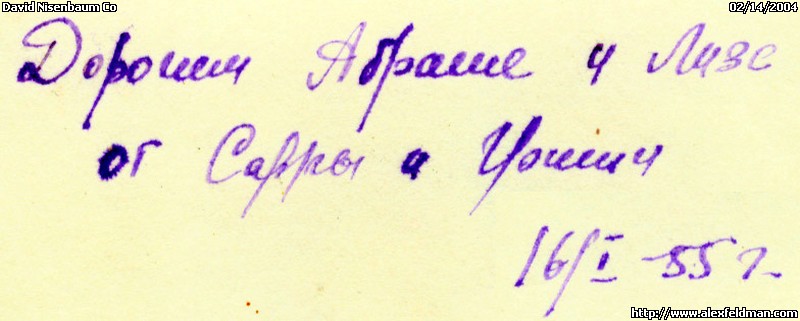 David Nisenbaum Co 02/14/2004
Дорогим Абраше и Лизе
от Сарры и
16/I-55 г.
http://www.alexfeldman.com